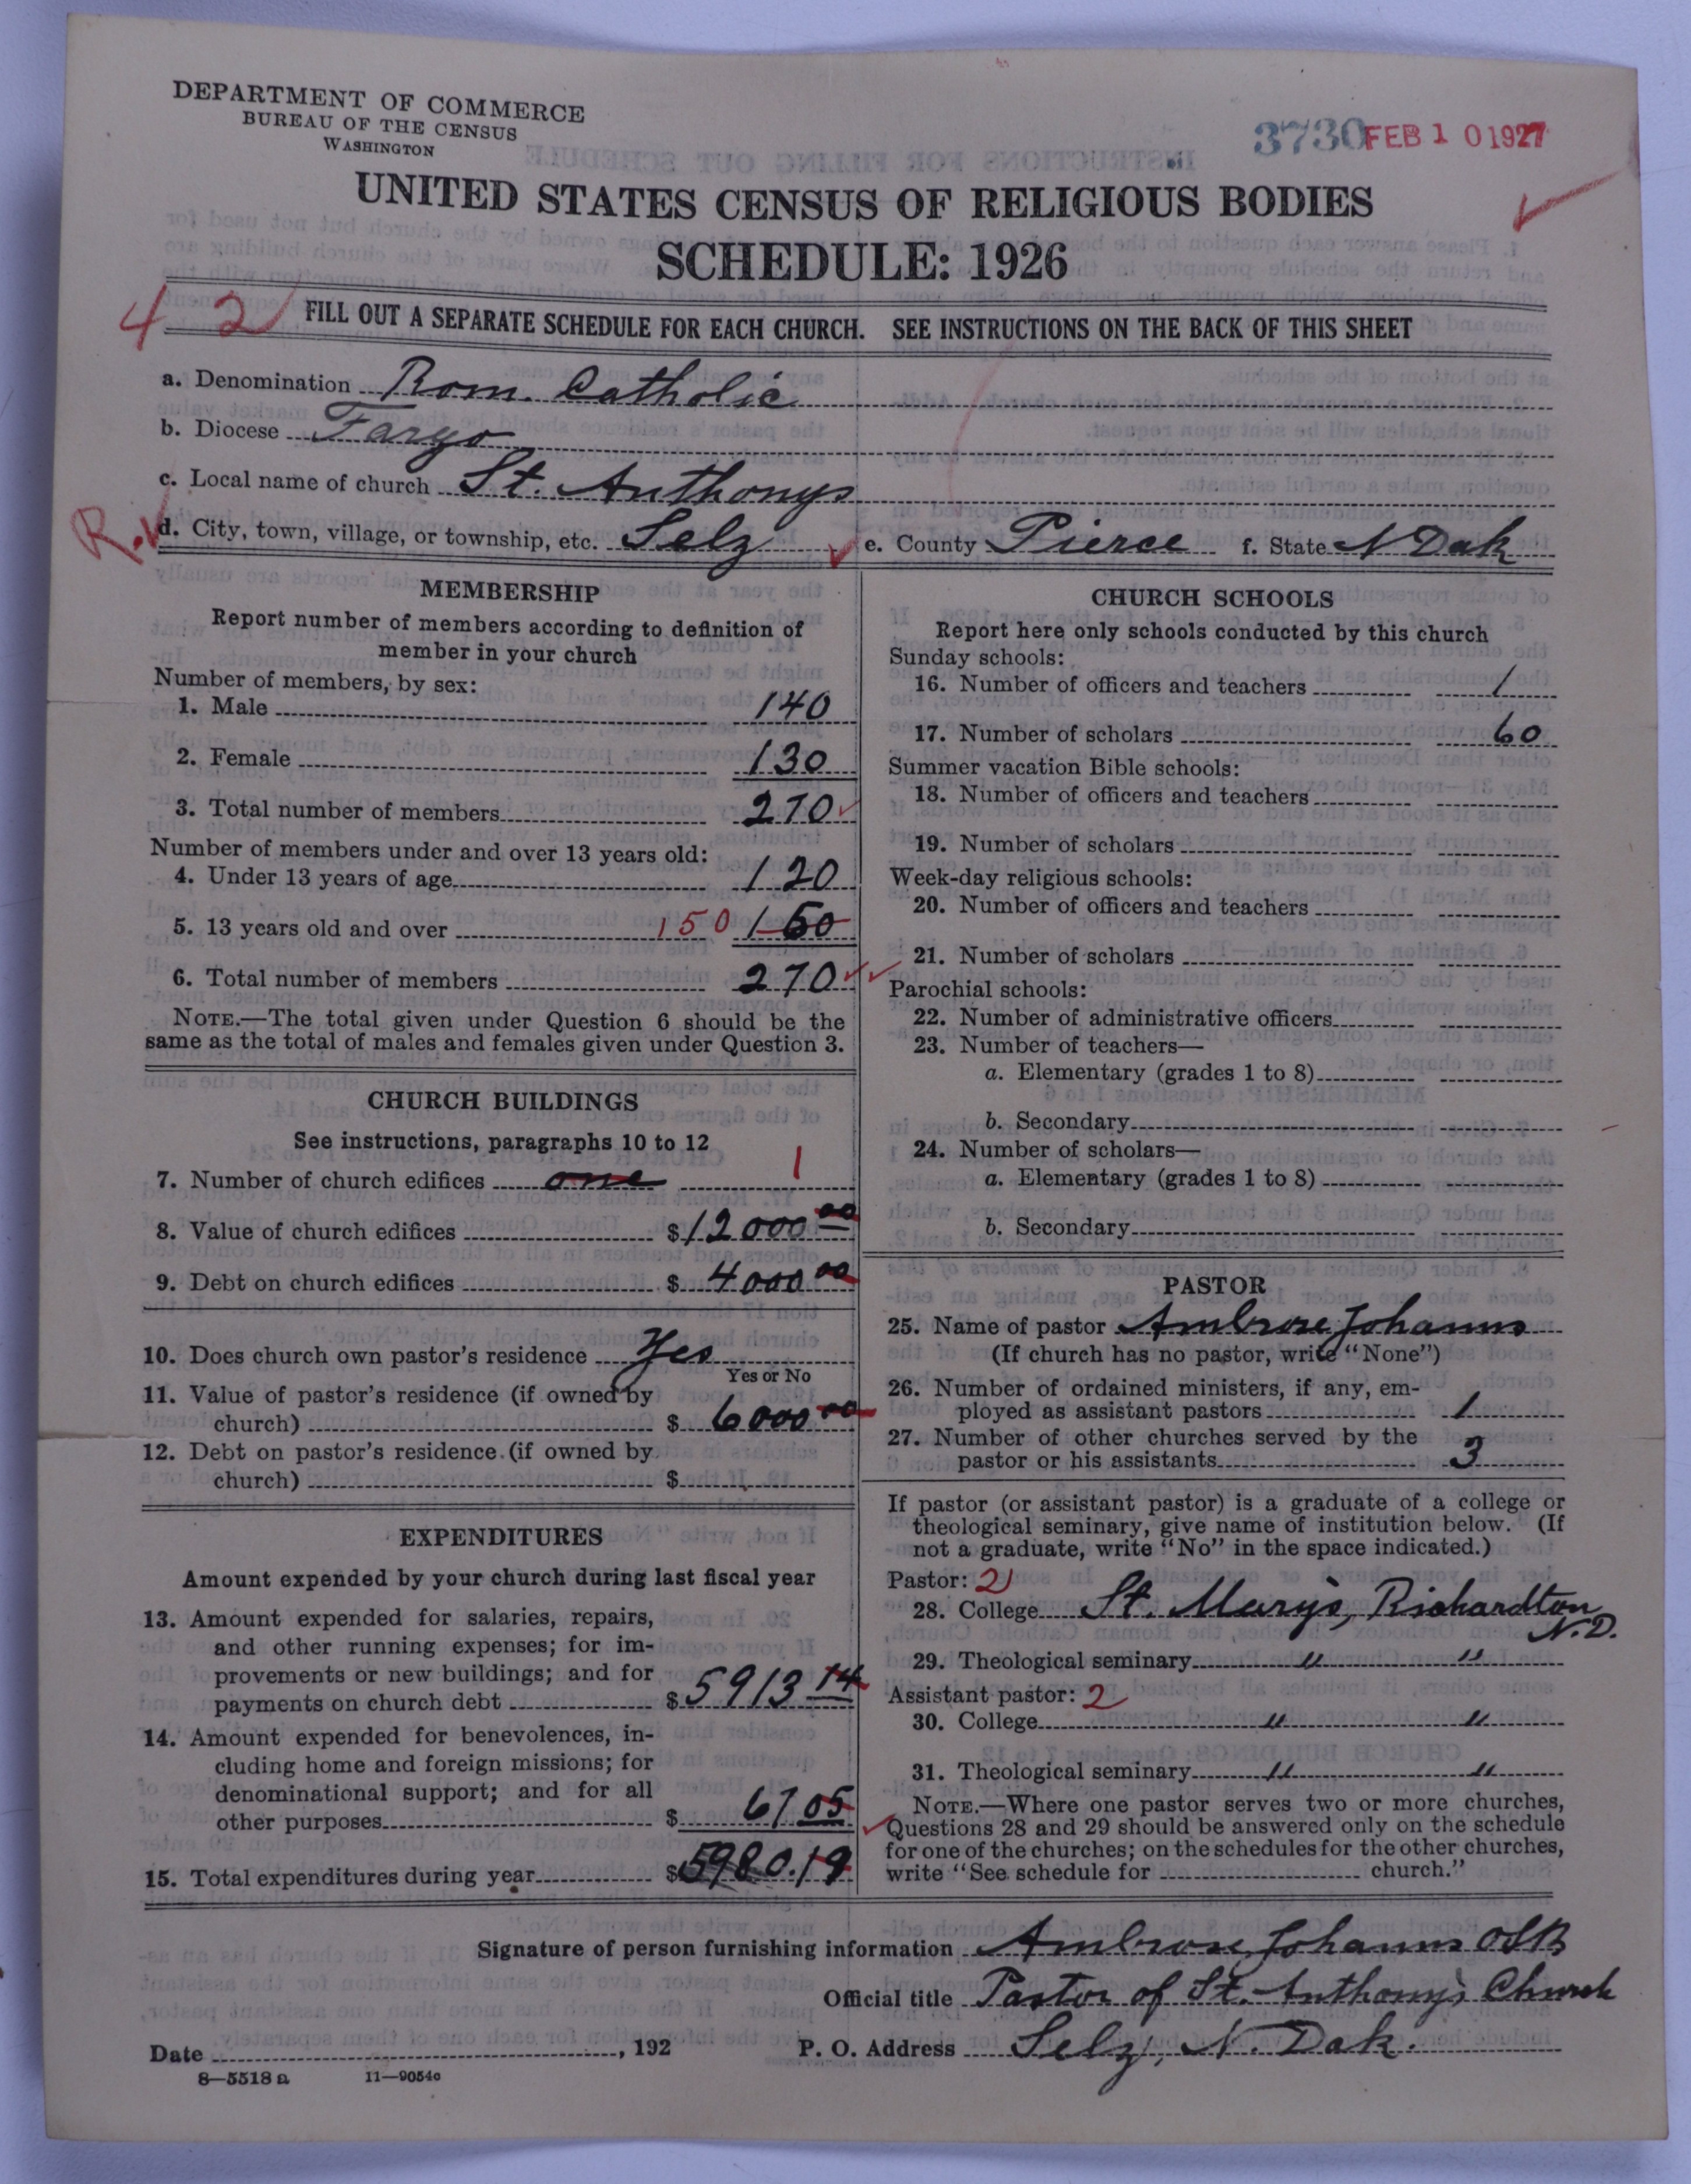 DEPARTMENT OF COMMERCE
BUREAU OF THE CENSUS
WASHINGTON
3730 FEB 10 1927
UNITED STATES CENSUS OF RELIGIOUS BODIES
SCHEDULE: 1926
4 2
FILL OUT A SEPARATE SCHEDULE FOR EACH CHURCH. SEE INSTRUCTIONS ON THE BACK OF THIS SHEET
a. Denomination Rom. Catholic
b. Diocese Fargo
c. Local name of church St. Anthonys
R.
d. City, town, village, or township, etc. Selz e. County Pierce f. State N Dak
MEMBERSHIP
Report number of members according to definition of
member in your church
Number of members, by sex:
1. Male 140
2. Female 130
3. Total number of members 270
Number of members under and over 13 years old:
4. Under 13 years of age 120
5. 13 years old and over 150 160
6. Total number of members 270
NOTE.—The total given under Question 6 should be the
same as the total of males and females given under Question 3.
CHURCH BUILDINGS
See instructions, paragraphs 10 to 12
7. Number of church edifices one 1
8. Value of church edifices $12000 00
9. Debt on church edifices $ 4000 00
10. Does church own pastor's residence Yes
Yes or No
11. Value of pastor's residence (if owned by
church) $ 6000 00
12. Debt on pastor's residence (if owned by
church) $
EXPENDITURES
Amount expended by your church during last fiscal year
13. Amount expended for salaries, repairs,
and other running expenses; for im-
provements or new buildings; and for
payments on church debt $ 5913 14
14. Amount expended for benevolences, in-
cluding home and foreign missions; for
denominational support; and for all
other purposes $ 67 05
15. Total expenditures during year $5980.19
CHURCH SCHOOLS
Report here only schools conducted by this church
Sunday schools:
16. Number of officers and teachers 1
17. Number of scholars 60
Summer vacation Bible schools:
18. Number of officers and teachers
19. Number of scholars
Week-day religious schools:
20. Number of officers and teachers
21. Number of scholars
Parochial schools:
22. Number of administrative officers
23. Number of teachers—
a. Elementary (grades 1 to 8)
b. Secondary
24. Number of scholars—
a. Elementary (grades 1 to 8)
b. Secondary
PASTOR
25. Name of pastor Ambrose Johanns
(If church has no pastor, write "None")
26. Number of ordained ministers, if any, em-
ployed as assistant pastors 1
27. Number of other churches served by the
pastor or his assistants 3
If pastor (or assistant pastor) is a graduate of a college or
theological seminary, give name of institution below. (If
not a graduate, write "No" in the space indicated.)
Pastor: 2
28. College St. Mary's, Richardton
N.D.
29. Theological seminary " "
Assistant pastor: 2
30. College " "
31. Theological seminary " "
NOTE.—Where one pastor serves two or more churches,
Questions 28 and 29 should be answered only on the schedule
for one of the churches; on the schedules for the other churches,
write "See schedule for church."
Signature of person furnishing information Ambrose Johanns OSB
Official title Pastor of St. Anthony's Church
Date , 192 P. O. Address Selz, N. Dak.
8—5518 a 11—9054c